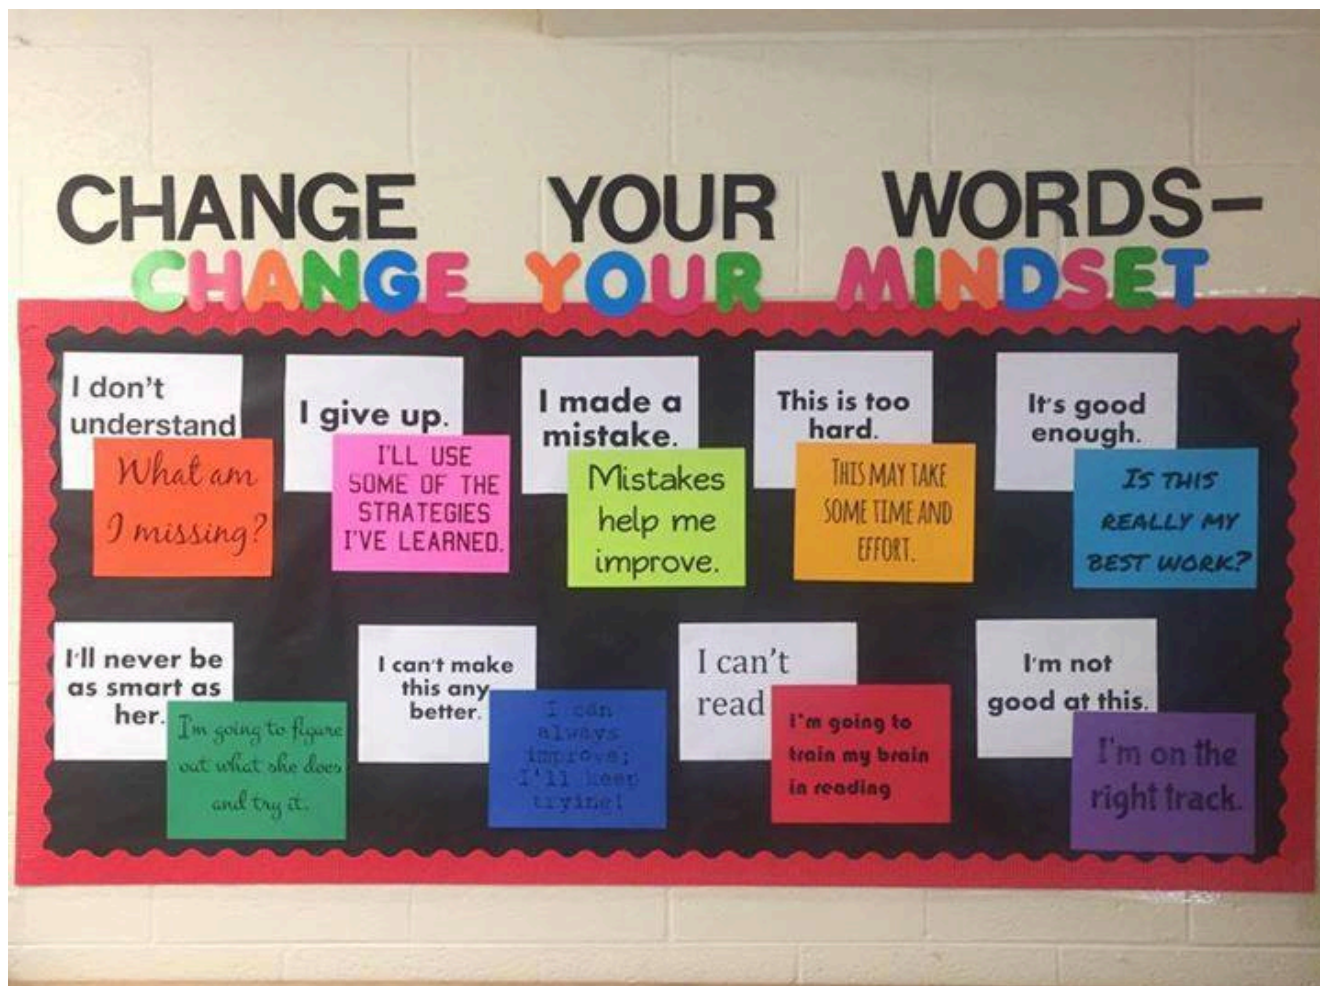 CHANGE YOUR WORDS-
CHANGE YOUR MINDSET
I don't
understand
What am
I missing?
I give up.
I'LL USE
SOME OF THE
STRATEGIES
I'VE LEARNED.
I made a
mistake.
Mistakes
help me
improve.
This is too
hard.
THIS MAY TAKE
SOME TIME AND
EFFORT.
It's good
enough.
IS THIS
REALLY MY
BEST WORK?
I'll never be
as smart as
her.
I'm going to figure
out what she does
and try it.
I can't make
this any
better.
I can
always
improve;
I'll keep
trying!
I can't
read
I'm going to
train my brain
in reading
I'm not
good at this.
I'm on the
right track.